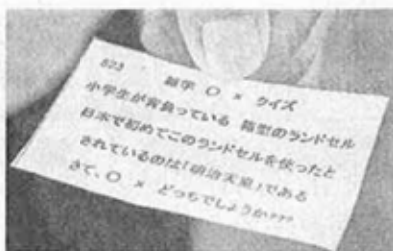 823 雑学 ○ × クイズ
小学生が背負っている 箱型のランドセル
日本で初めてこのランドセルを使ったと
されているのは「明治天皇」である
さて、○ × どっちでしょうか???